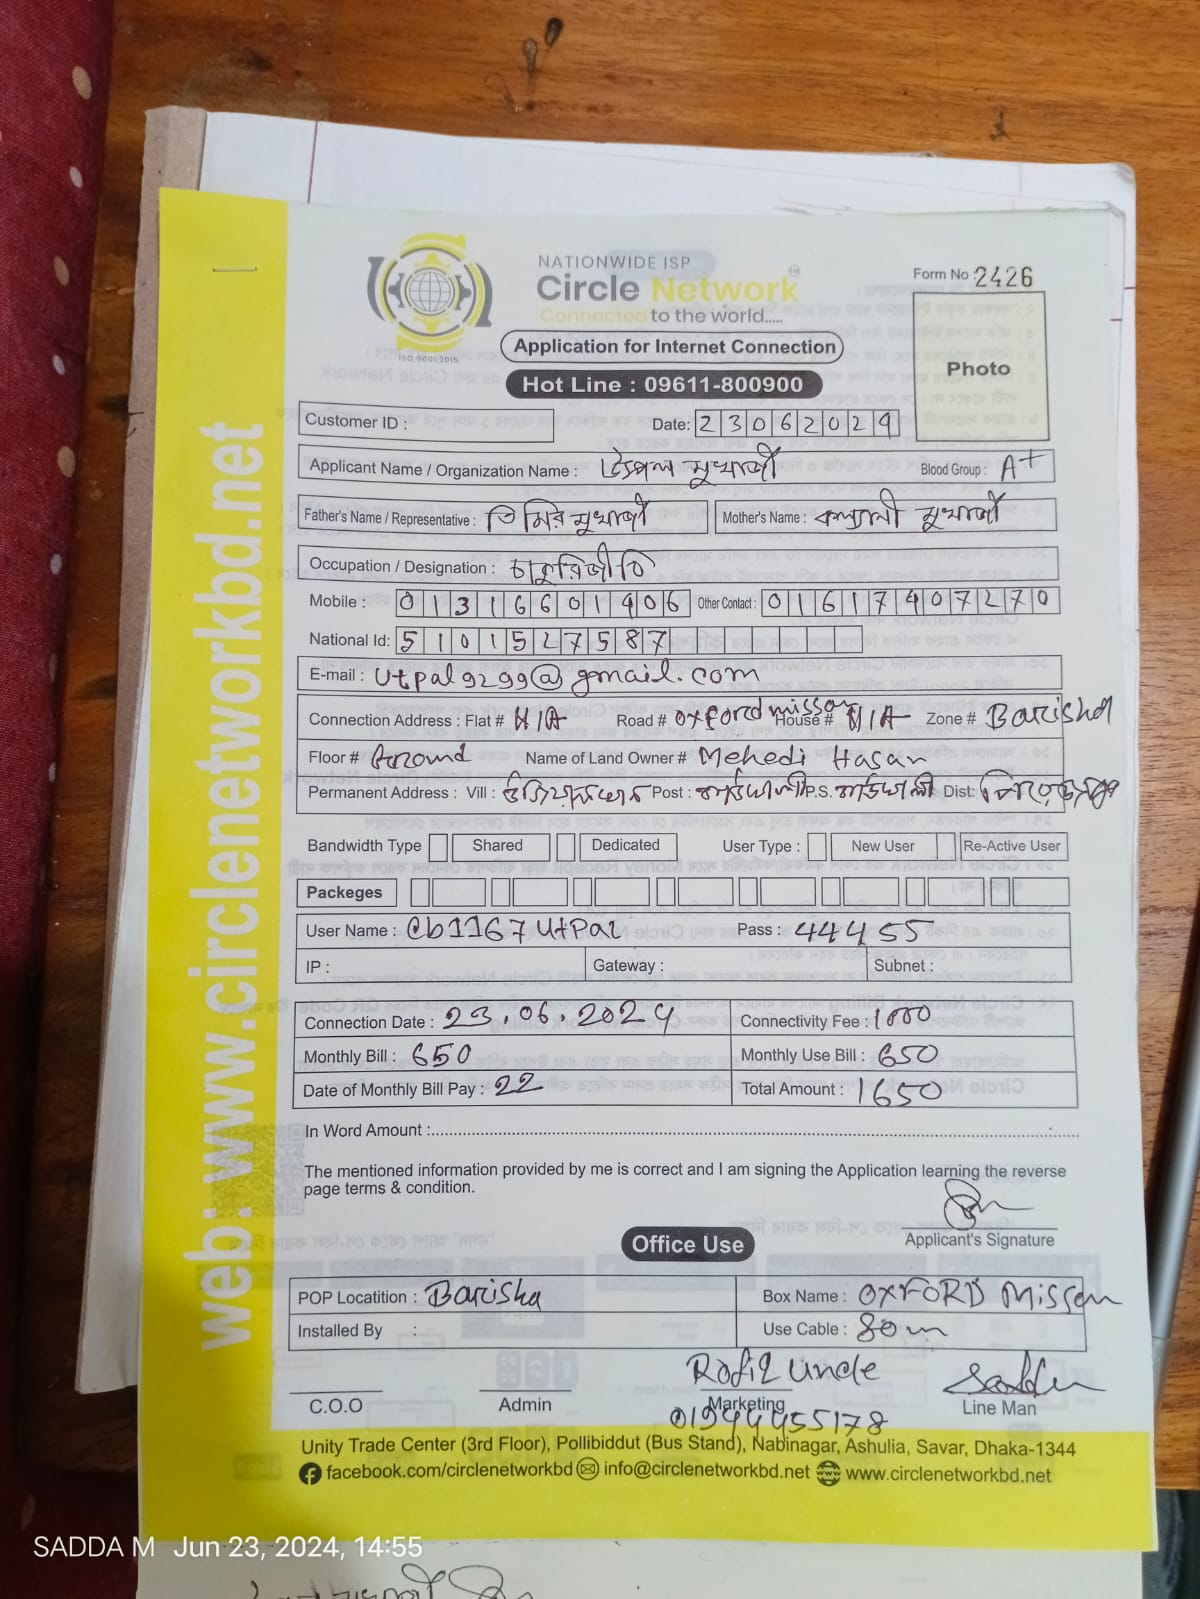 NATIONWIDE ISP
Circle Network
Connected to the world.....
ISO 9001:2015
Form No : 2426
Application for Internet Connection
Hot Line : 09611-800900
Photo
Customer ID :
Date: 23062024
Applicant Name / Organization Name : উৎপল মুখার্জী Blood Group : A+
Father's Name / Representative : তিমির মুখার্জী Mother's Name : কল্যানী মুখার্জী
Occupation / Designation : চাকুরিজীবি
Mobile : 01316601406 Other Contact : 01617407270
National Id: 5101527587
E-mail : utpal9299@gmail.com
Connection Address : Flat # N/A Road # oxford misson House # N/A Zone # Barishal
Floor # Ground Name of Land Owner # Mehedi Hasan
Permanent Address : Vill : Post : P.S. Dist:
Bandwidth Type Shared Dedicated User Type : New User Re-Active User
Packeges
User Name : Cb1167UtPal Pass : 44455
IP : Gateway : Subnet :
Connection Date : 23.06.2024 Connectivity Fee : 1000
Monthly Bill : 650 Monthly Use Bill : 650
Date of Monthly Bill Pay : 22 Total Amount : 1650
In Word Amount :
The mentioned information provided by me is correct and I am signing the Application learning the reverse
page terms & condition.
Applicant's Signature
Office Use
POP Locatition : Barisha Box Name : OXFORD Misson
Installed By : Use Cable : 80m
Rofiq Uncle
C.O.O Admin Marketing Line Man
01944455178
Unity Trade Center (3rd Floor), Pollibiddut (Bus Stand), Nabinagar, Ashulia, Savar, Dhaka-1344
facebook.com/circlenetworkbd info@circlenetworkbd.net www.circlenetworkbd.net
web: www.circlenetworkbd.net
SADDA M Jun 23, 2024, 14:55